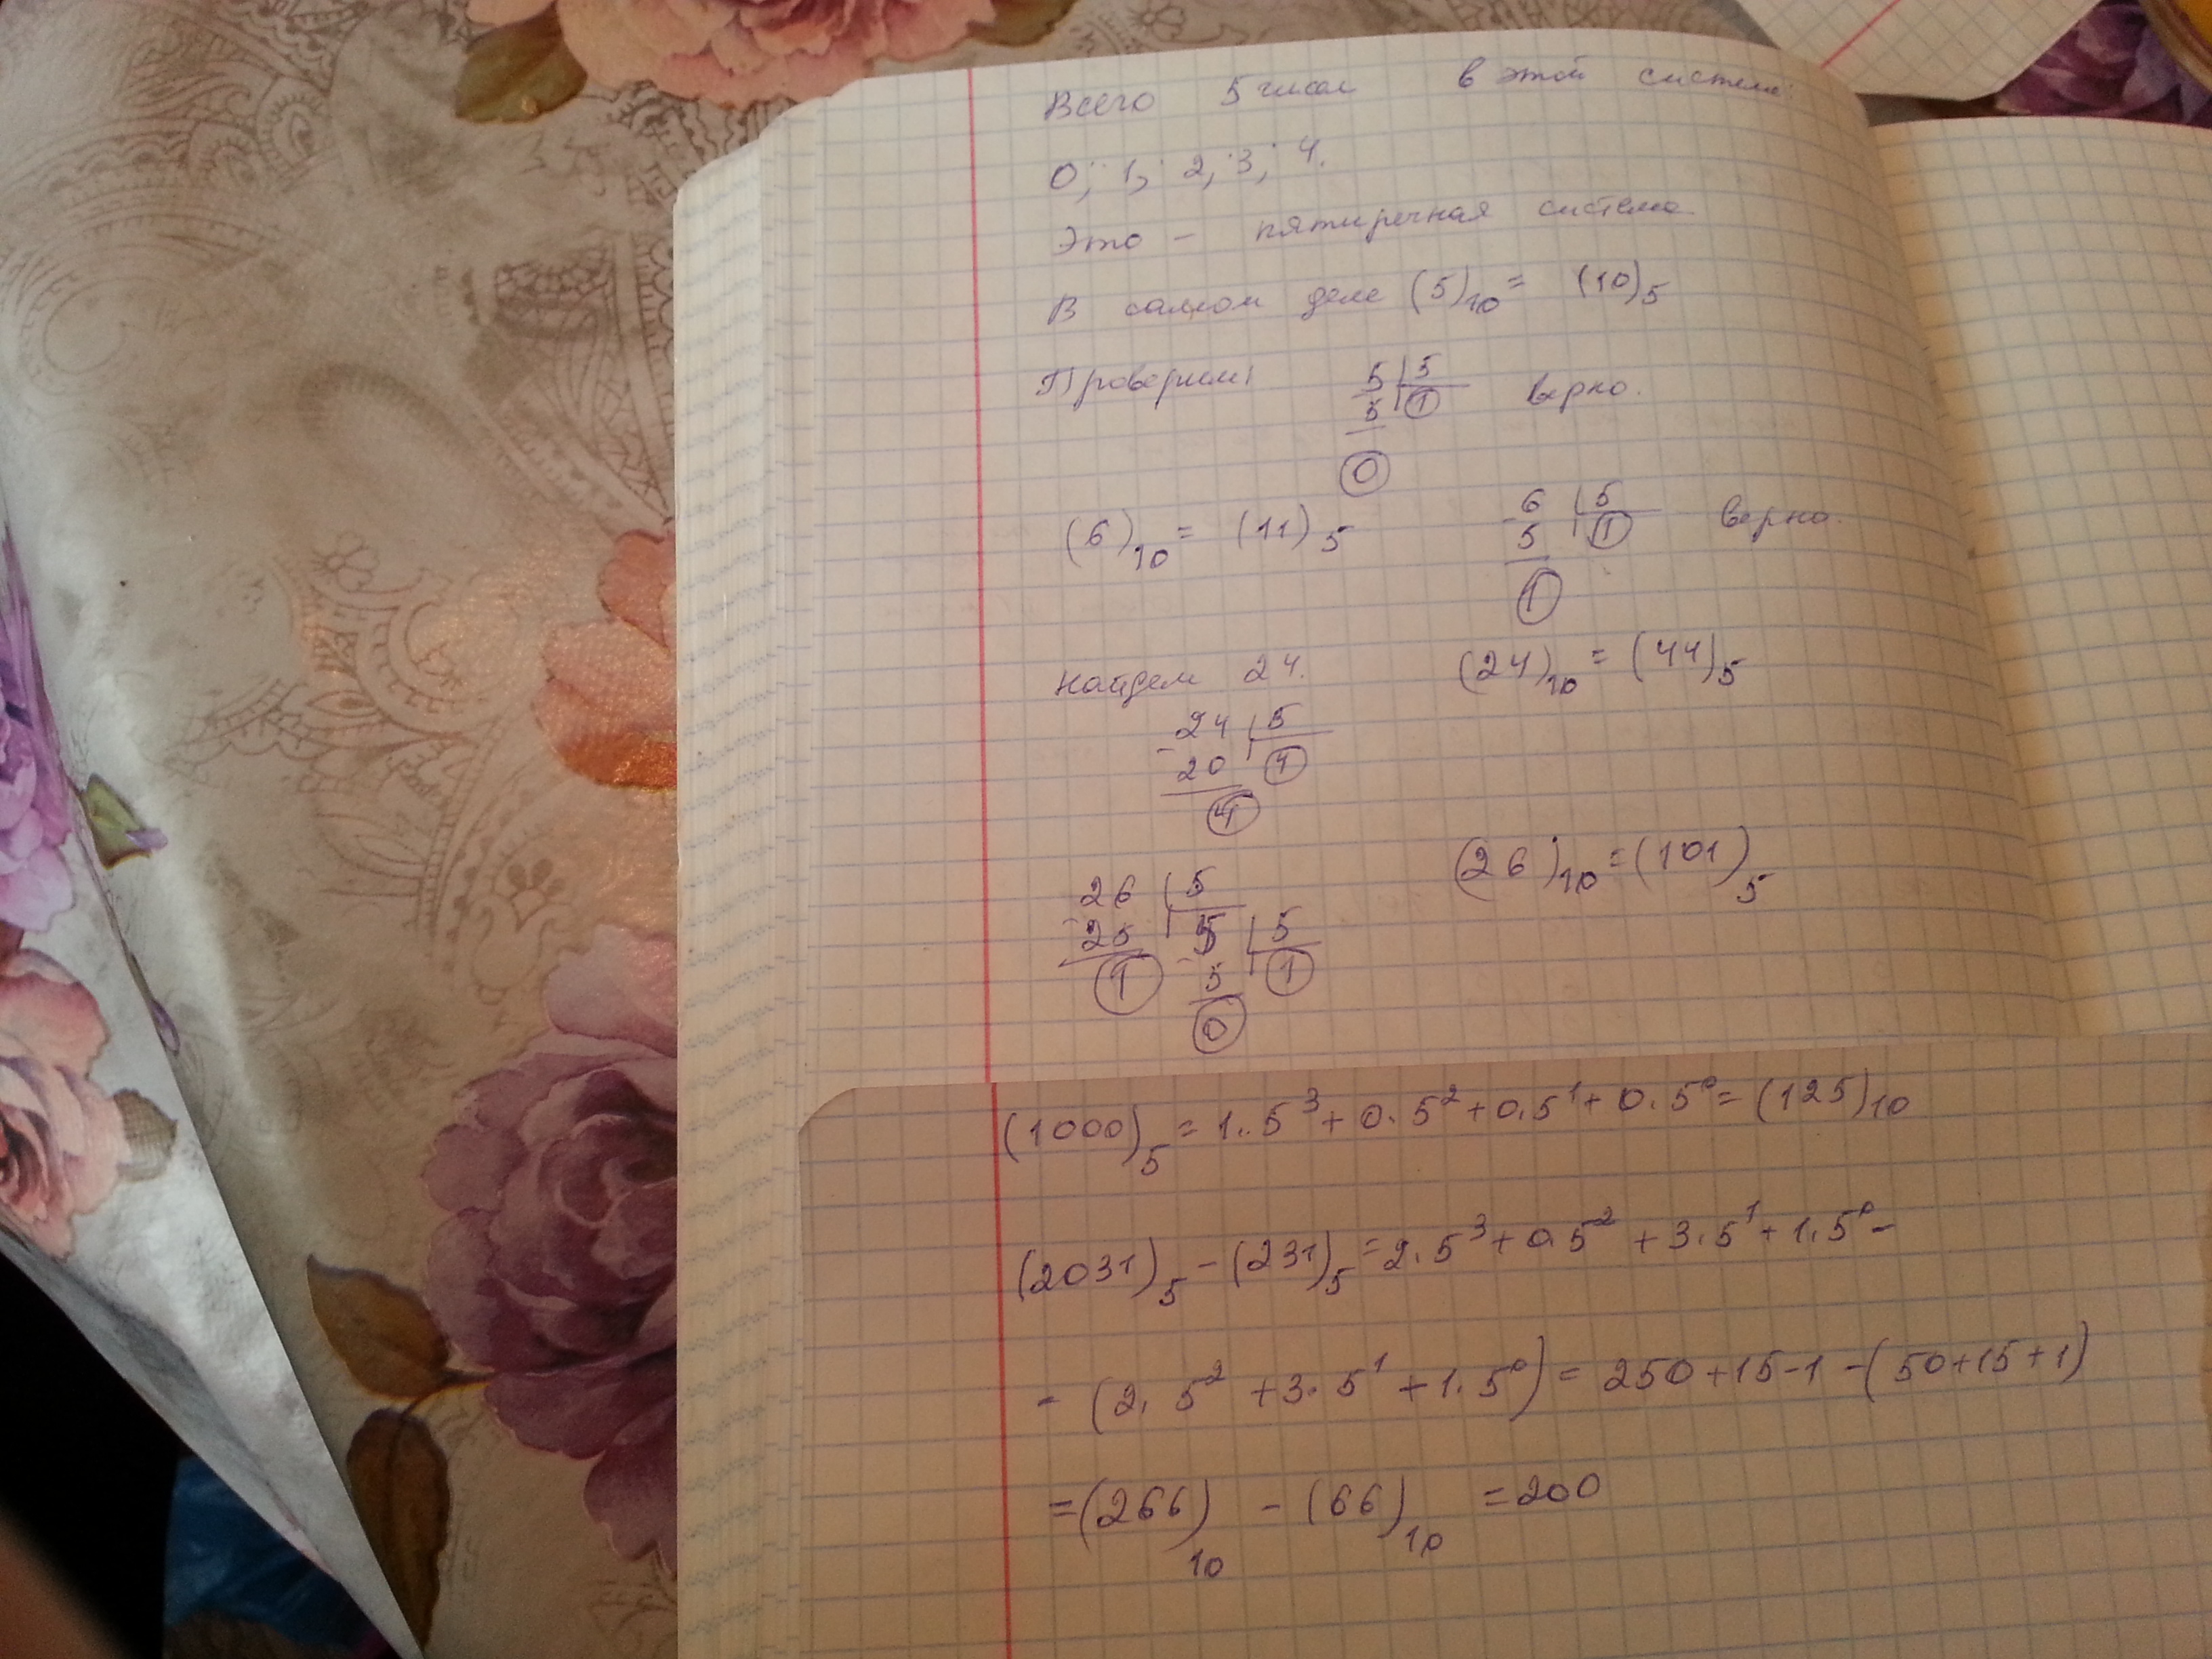 Всего 5 чисел в этой системе:
0; 1; 2; 3; 4.
Это - пятиречная система.
В самом деле (5)₁₀ = (10)₅
Проверим: 5 | 5 верно.
5 1
0
(6)₁₀ = (11)₅ - 6 | 5 верно.
5 1
1
Найдем 24. (24)₁₀ = (44)₅
- 24 | 5
20 4
4
(26)₁₀ = (101)₅
- 26 | 5
25 - 5 | 5
1 5 1
0
(1000)₅ = 1·5³ + 0·5² + 0·5¹ + 0·5⁰ = (125)₁₀
(2031)₅ - (231)₅ = 2·5³ + 0·5² + 3·5¹ + 1·5⁰ -
- (2·5² + 3·5¹ + 1·5⁰) = 250 + 15 - 1 - (50 + 15 + 1)
= (266)₁₀ - (66)₁₀ = 200